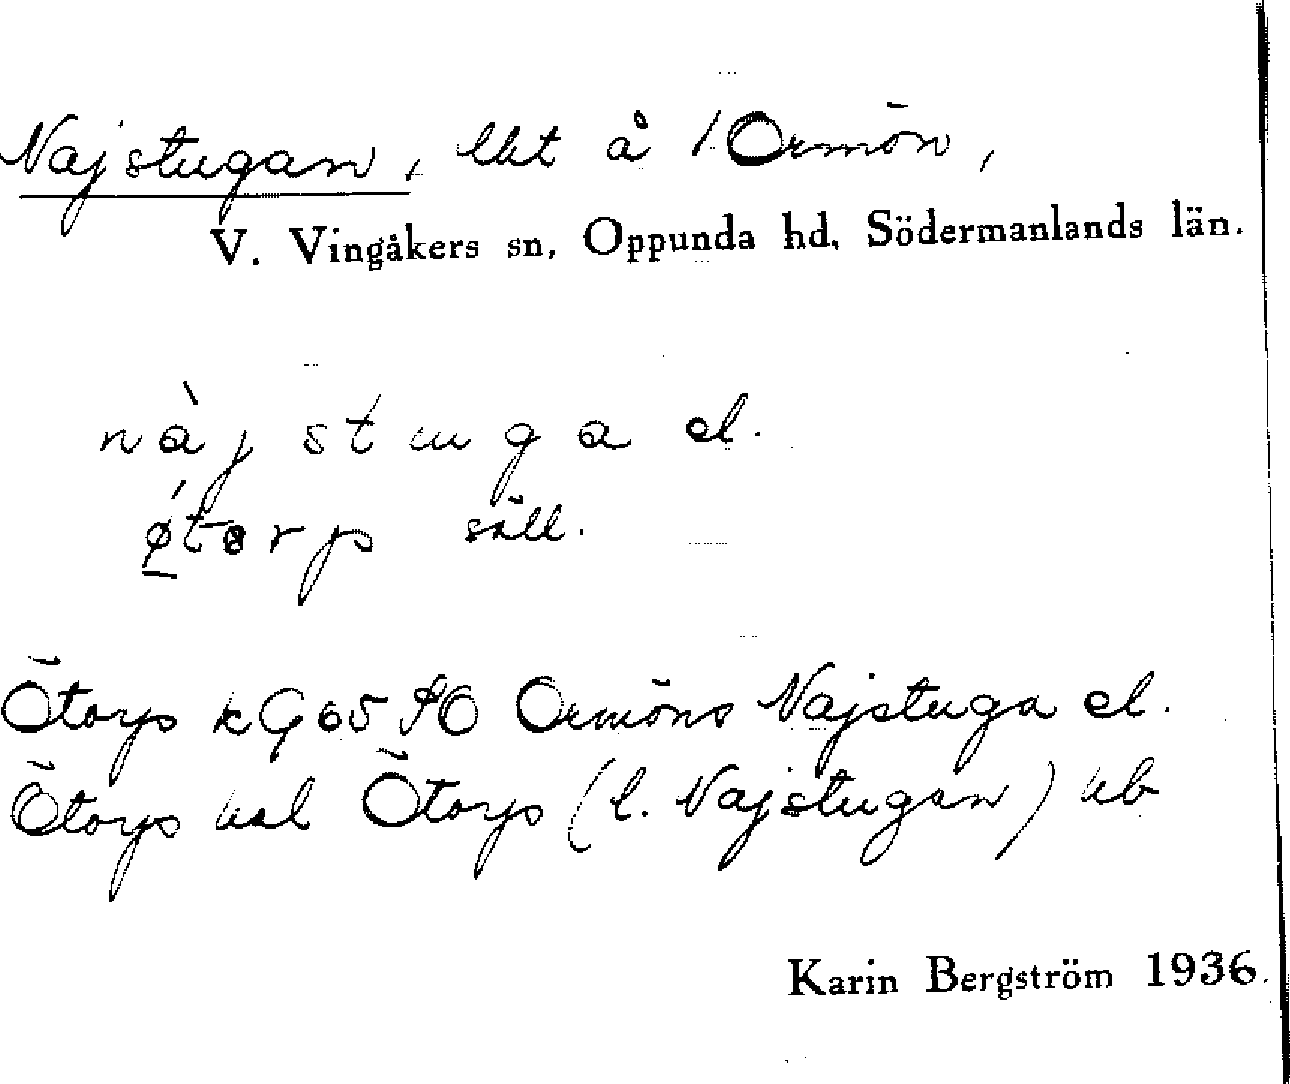 Najstugan, lht å 1 Ormön,
V. Vingåkers sn, Oppunda hd, Södermanlands län.
nàjstuga el.
ǿtorp säll.
Ötorp kG65 PO Ormöns Najstuga el.
Ötorp hsl Ötorp (l. Najstugan) hb
Karin Bergström 1936.